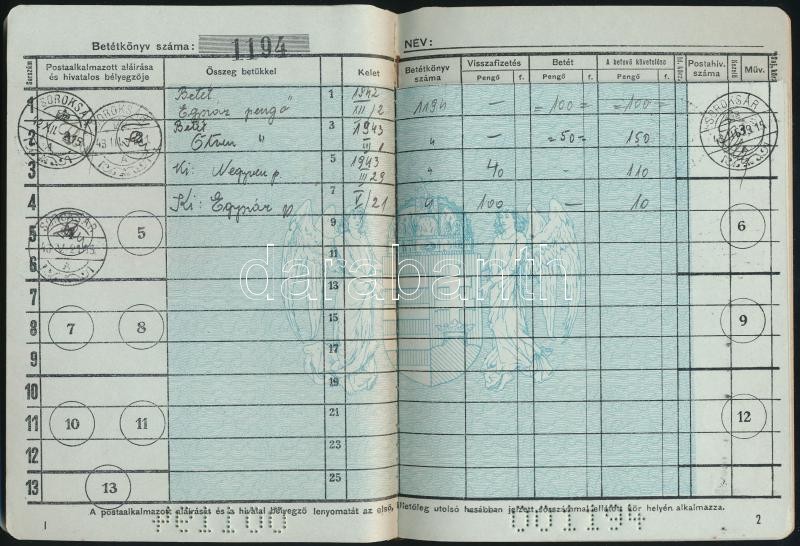 Betétkönyv száma: 1194 NÉV:
Sorszám Postaalkalmazott aláírása és hivatalos bélyegzője Összeg betükkel Kelet Betétkönyv száma Visszafizetés Pengő f. Betét Pengő f. A betevő követelése Pengő f. Postahiv. száma Kezelő Műv.
1 Betét Egyszáz pengő 1 1942 XII/2 1194 — =100= =100=
2 Betét Ötven " 3 1943 — =50= 150
3 Ki: Negyven p. 5 1943 III 29 " 40 — 110
4 Ki: Egyszáz p 7 V/21 " 100 — 10
SOROKSÁR SOROKSÁR SOROKSÁR SOROKSÁR
5 5 9 6
6 11
7 13
8 7 8 15 9
9 17
10 19
11 10 11 21 12
12 23
13 13 25
darabanth
A postaalkalmazott aláírását és a hivatal bélyegző lenyomatát az első, illetőleg utolsó hasábban jelzett sorszámmal ellátott kör helyén alkalmazza.
1 2
001194